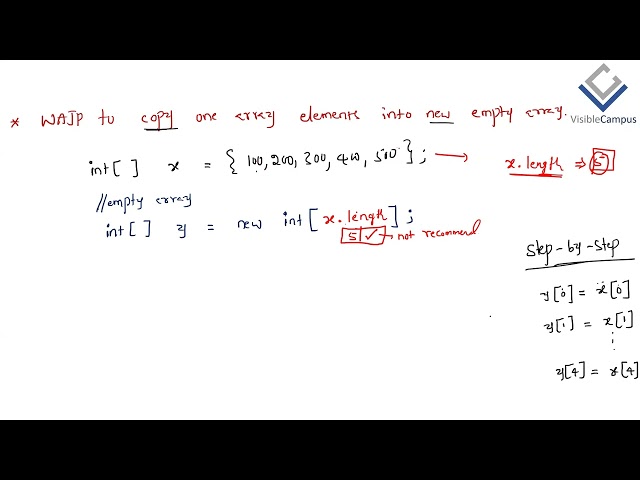 VisibleCampus
* WAJP to copy one array elements into new empty array.
int[ ] x = { 100, 200, 300, 400, 500 } ; → x.length ⇒ 5
//empty array
int[ ] y = new int[ x.length ] ;
5 ✓ → not recommend
Step-by-step
y[0] = x[0]
y[1] = x[1]
y[4] = x[4]